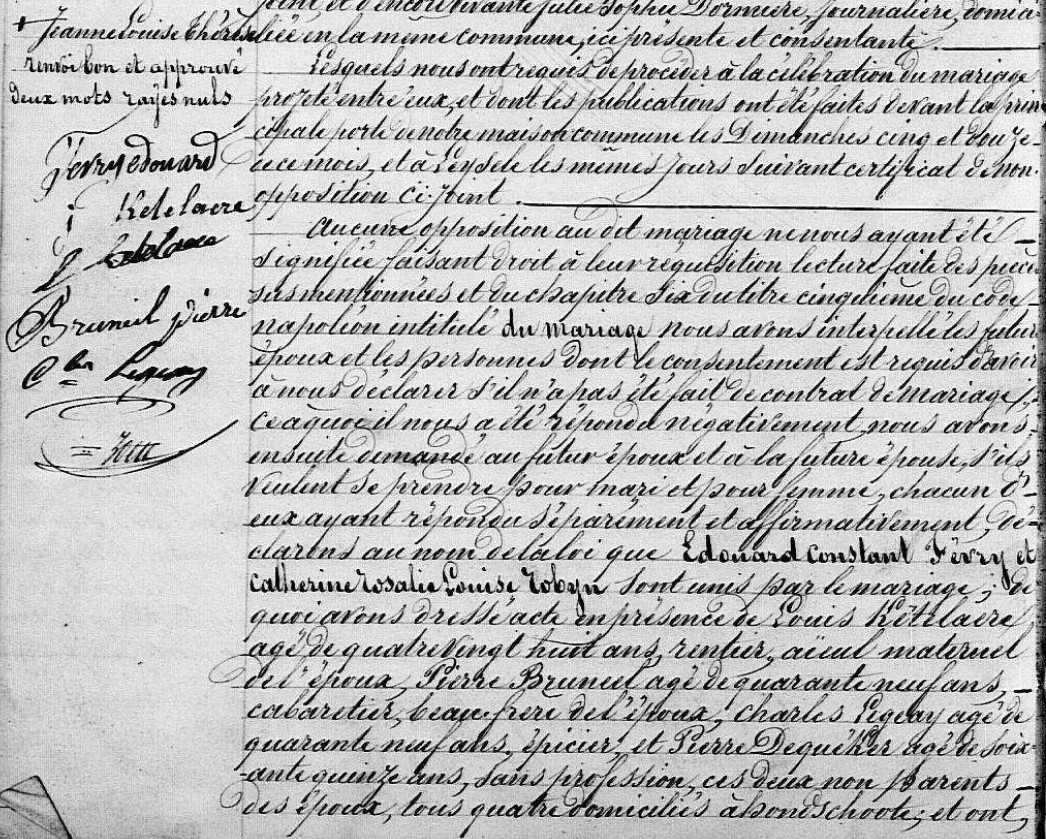 + Jeanne Louise Thérèse
renvoi bon et approuvé
deux mots rayés nuls
Fevry edouard
Ketelaere
Bruneel pierre
Ch les Legeay
joint et d'encore vivante Julie Sophie Dormiere, journalière, domici
liée en la même commune, ici présente et consentante.
Lesquels nous ont requis de procéder à la célébration du mariage
projeté entre eux, et dont les publications ont été faites devant la prin
cipale porte de notre maison commune les Dimanches cinq et douze
de ce mois, et à Leysele les mêmes jours suivant certificat de non
opposition ci-joint.
Aucune opposition au dit mariage ne nous ayant été
signifiée faisant droit à leur réquisition lecture faite des pièces
susmentionnées et du chapitre six du titre cinquième du code
napoléon intitulé du mariage nous avons interpellé les futurs
époux et les personnes dont le consentement est requis d'avoir
à nous déclarer s'il n'a pas été fait de contrat de mariage,
ce à quoi il nous a été répondu négativement, nous avons
ensuite demandé au futur époux et à la future épouse, s'ils
veulent se prendre pour mari et pour femme, chacun d'
eux ayant répondu séparément et affirmativement, dé-
clarons au nom de la loi que Edouard Constant Févry et
Catherine Rosalie Louise Robyn sont unis par le mariage; de
quoi avons dressé acte en présence de Louis Kételaere,
agé de quatre vingt huit ans, rentier, aïeul maternel
de l'époux, Pierre Bruneel agé de quarante neuf ans,
cabaretier, beau-frère de l'époux, Charles Legeay agé de
quarante neuf ans, épicier, et Pierre Dequéker agé de soix-
ante quinze ans, sans profession, ces deux non parents
des époux, tous quatre domiciliés à hondschoote; et ont,